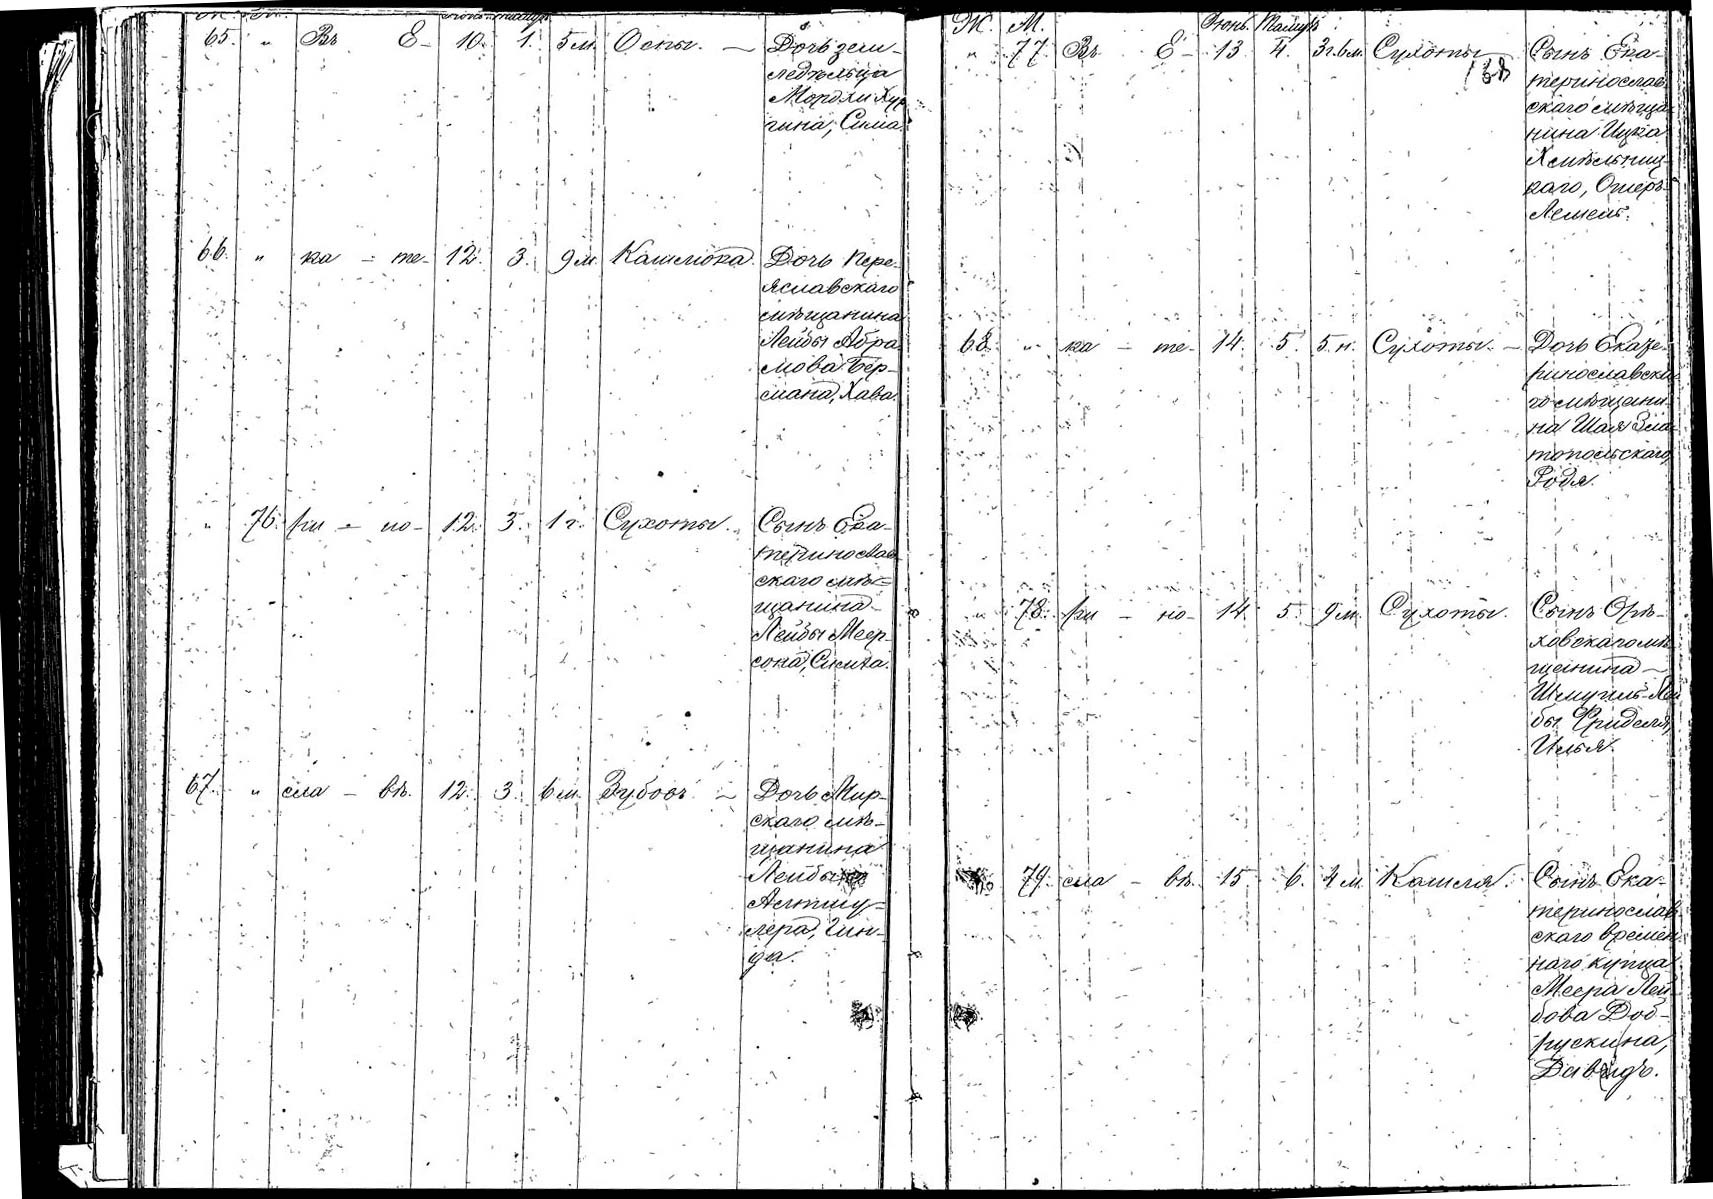 Ж. М. Іюнь. Тамуз.
65. " Въ Е- 10. 1. 5 м. Оспы. — Дочь зем-
ледѣльца
Мордхи Хур-
гина, Сима.
66. " ка - те- 12. 3. 9 м. Коклюша. Дочь Пере-
яславскаго
мѣщанина
Лейбы Абра-
мова Бер-
мана, Хава.
" 76. ри - но- 12. 3. 1 г. Сухоты. Сынъ Ека-
теринослав-
скаго мѣ-
щанина
Лейбы Меер-
сона, Симха.
67. " сла - вѣ. 12. 3. 6 м. Зубовъ. — Дочь Мир-
скаго мѣ-
щанина
Лейбы
Альтшу-
лера, Гин-
да.
Ж. М. Іюнь. Тамуз.
" 77. Въ Е- 13. 4. 3 г. 6 м. Сухоты. Сынъ Ека-
138
теринослав-
скаго мѣща-
нина Ицка
Хмѣльниц-
каго, Ошеръ-
Лемель.
68. " ка - те- 14. 5. 5 н. Сухоты. — Дочь Екате-
ринославска-
го мѣщани-
на Шая Зла-
топольскаго,
Родя.
" 78. ри - но- 14. 5. 9 м. Сухоты. Сынъ Орѣ-
ховскаго мѣ-
щанина —
Шмуиль-Лей-
бы Фриделя,
Илья.
79. сла - вѣ. 15. 6. 4 м. Кашля. Сынъ Ека-
теринослав-
скаго времен-
наго купца
Меера Лей-
бова Доб-
рускина,
Давидъ.